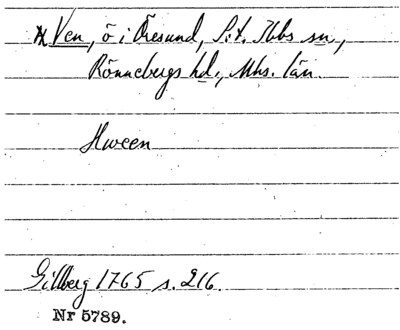 *Ven, ö i Öresund, S:t. Ibbs sn,
Rönnebergs hd., Mhs. län.
Hween
Gillberg 1765 s. 216.
Nr 5789.